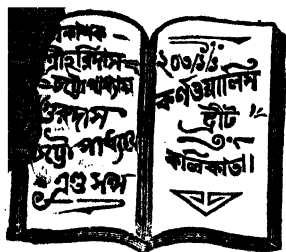 প্রকাশক—
শ্রীহরিদাস
চট্টোপাধ্যায়
গুরুদাস
চট্টোপাধ্যায়
এণ্ড সন্স
২০৩/১/১
কর্ণওয়ালিস
ষ্ট্রীট
কলিকাতা।।